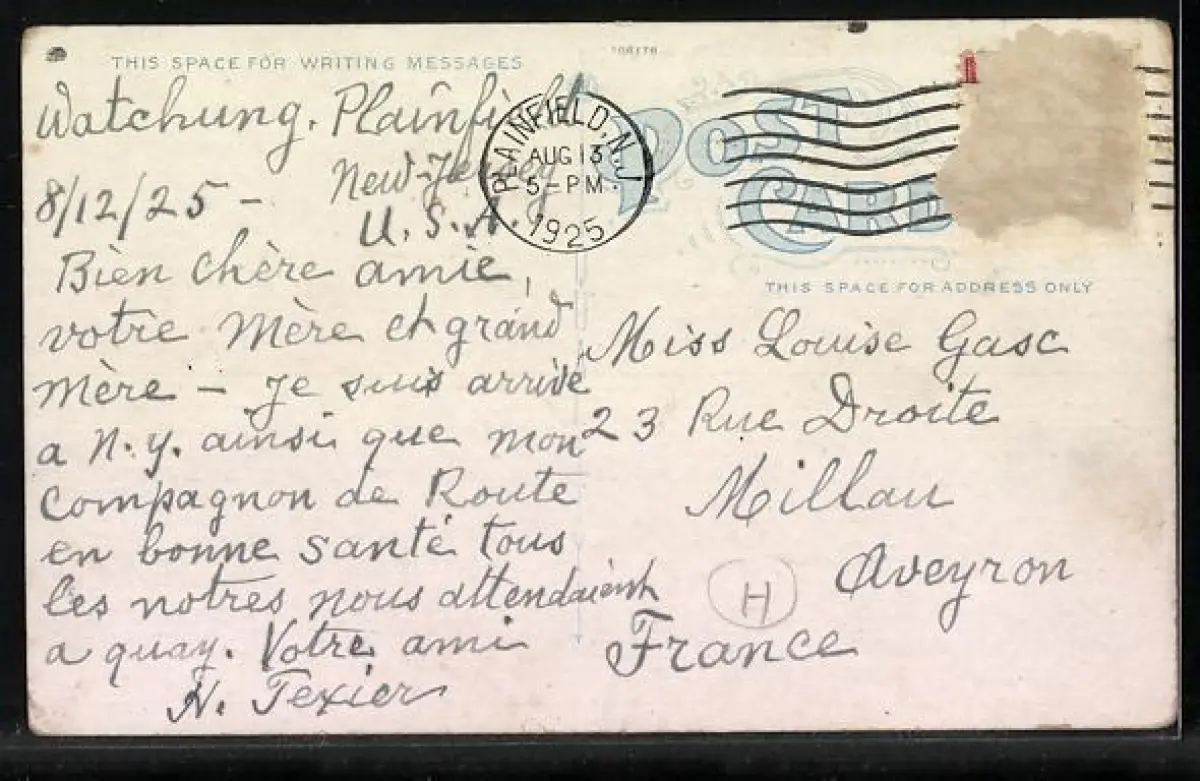 THIS SPACE FOR WRITING MESSAGES
Watchung. Plainfield
New-Jersey
8/12/25 -
U.S.A
Bien chère amie,
votre Mère et grand
Mère - Je suis arrivé
a N.y. ainsi que mon
Compagnon de Route
en bonne santé tous
les notres nous attendaient
a quay. Votre ami
N. Texier
PLAINFIELD, N.J.
AUG 13
5-PM
1925
POST
CARD
THIS SPACE FOR ADDRESS ONLY
Miss Louise Gasc
23 Rue Droite
Millau
Aveyron
H
France